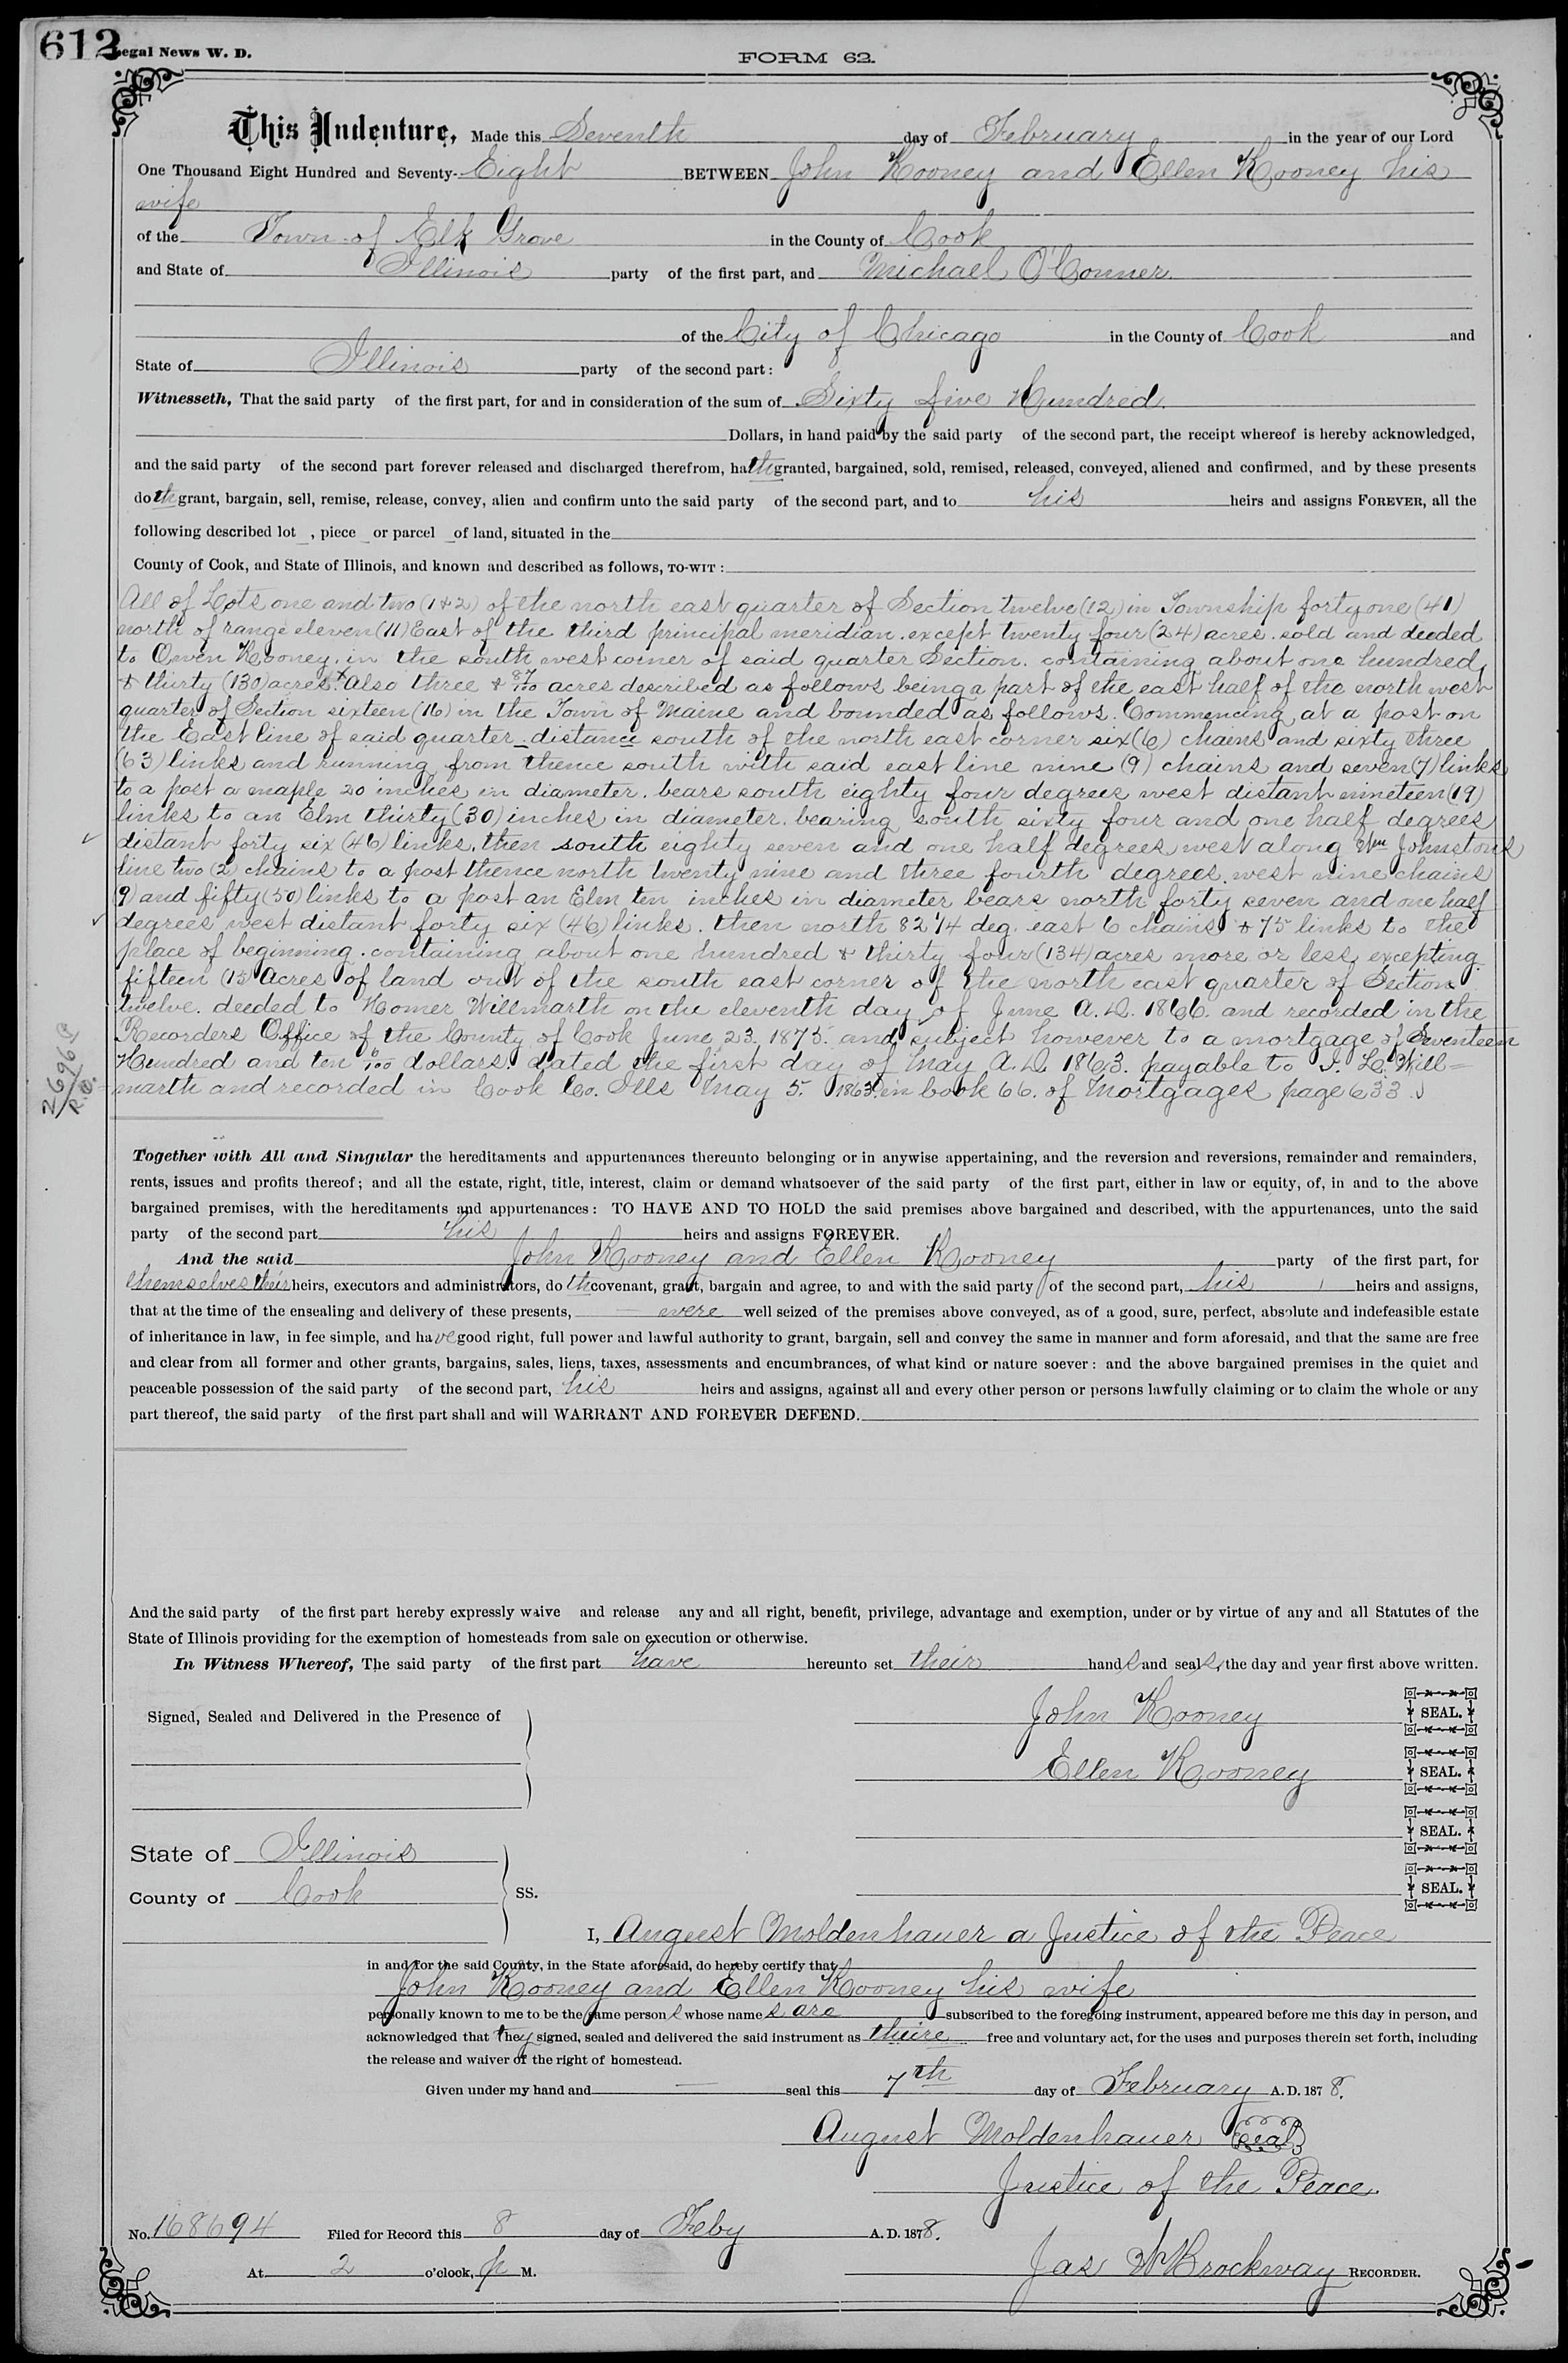 612
Legal News W. D.
FORM 62.
This Indenture, Made this Seventh day of February in the year of our Lord
One Thousand Eight Hundred and Seventy-Eight BETWEEN John Rooney and Ellen Rooney his
wife
of the Town of Elk Grove in the County of Cook
and State of Illinois party of the first part, and Michael O'Conner
of the City of Chicago in the County of Cook and
State of Illinois party of the second part:
Witnesseth, That the said party of the first part, for and in consideration of the sum of Sixty five Hundred
Dollars, in hand paid by the said party of the second part, the receipt whereof is hereby acknowledged,
and the said party of the second part forever released and discharged therefrom, hath granted, bargained, sold, remised, released, conveyed, aliened and confirmed, and by these presents
doth grant, bargain, sell, remise, release, convey, alien and confirm unto the said party of the second part, and to his heirs and assigns FOREVER, all the
following described lot , piece or parcel of land, situated in the
County of Cook, and State of Illinois, and known and described as follows, TO-WIT:
All of Lots one and two (1 & 2) of the north east quarter of Section twelve (12) in Township forty one (41)
north of range eleven (11) East of the third principal meridian. except twenty four (24) acres. sold and deeded
to Owen Rooney, in the south west corner of said quarter Section. containing about one hundred
& thirty (130) acres. Also three & 87/100 acres described as follows being a part of the east half of the north west
quarter of Section sixteen (16) in the Town of Maine and bounded as follows. Commencing at a post on
the East line of said quarter distance south of the north east corner six (6) chains and sixty three
(63) links and running from thence south with said east line nine (9) chains and seven (7) links
to a post a maple 20 inches in diameter. bears south eighty four degrees west distant nineteen (19)
links to an Elm thirty (30) inches in diameter. bearing south sixty four and one half degrees
distant forty six (46) links, then south eighty seven and one half degrees west along Wm Johnstons
line two (2) chains to a post thence north twenty nine and three fourth degrees. west nine chains
(9) and fifty (50) links to a post an Elm ten inches in diameter bears north forty seven and one half
degrees west distant forty six (46) links. then north 82 1/4 deg. east 6 chains & 75 links to the
place of beginning. containing about one hundred & thirty four (134) acres more or less, excepting
fifteen (15) Acres of land out of the south east corner of the north east quarter of Section
twelve. deeded to Homer Willmarth on the eleventh day of June A.D. 1866. and recorded in the
Recorders Office of the County of Cook June 23. 1875. and subject however to a mortgage of Seventeen
Hundred and ten 0/100 dollars. dated the first day of May A.D. 1863. payable to L. Will=
marth and recorded in Cook Co. Ills May 5. 1863. in book 66. of Mortgages page 633.
2696
Together with All and Singular the hereditaments and appurtenances thereunto belonging or in anywise appertaining, and the reversion and reversions, remainder and remainders,
rents, issues and profits thereof; and all the estate, right, title, interest, claim or demand whatsoever of the said party of the first part, either in law or equity, of, in and to the above
bargained premises, with the hereditaments and appurtenances: TO HAVE AND TO HOLD the said premises above bargained and described, with the appurtenances, unto the said
party of the second part his heirs and assigns FOREVER.
And the said John Rooney and Ellen Rooney party of the first part, for
themselves their heirs, executors and administrators, do th covenant, grant, bargain and agree, to and with the said party of the second part, his heirs and assigns,
that at the time of the ensealing and delivery of these presents, were well seized of the premises above conveyed, as of a good, sure, perfect, absolute and indefeasible estate
of inheritance in law, in fee simple, and have good right, full power and lawful authority to grant, bargain, sell and convey the same in manner and form aforesaid, and that the same are free
and clear from all former and other grants, bargains, sales, liens, taxes, assessments and encumbrances, of what kind or nature soever: and the above bargained premises in the quiet and
peaceable possession of the said party of the second part, his heirs and assigns, against all and every other person or persons lawfully claiming or to claim the whole or any
part thereof, the said party of the first part shall and will WARRANT AND FOREVER DEFEND.
And the said party of the first part hereby expressly waive and release any and all right, benefit, privilege, advantage and exemption, under or by virtue of any and all Statutes of the
State of Illinois providing for the exemption of homesteads from sale on execution or otherwise.
In Witness Whereof, The said party of the first part have hereunto set their hands and seals, the day and year first above written.
Signed, Sealed and Delivered in the Presence of
John Rooney SEAL.
Ellen Rooney SEAL.
SEAL.
SEAL.
State of Illinois
County of Cook SS.
I, August Moldenhauer a Justice of the Peace
in and for the said County, in the State aforesaid, do hereby certify that
John Rooney and Ellen Rooney his wife
personally known to me to be the same persons whose names are subscribed to the foregoing instrument, appeared before me this day in person, and
acknowledged that they signed, sealed and delivered the said instrument as theire free and voluntary act, for the uses and purposes therein set forth, including
the release and waiver of the right of homestead.
Given under my hand and seal this 7th day of February A.D. 1878.
August Moldenhauer Seal
Justice of the Peace.
No. 168694 Filed for Record this 8 day of Feby A.D. 1878.
At 2 o'clock, P M.
Jas W Brockway RECORDER.